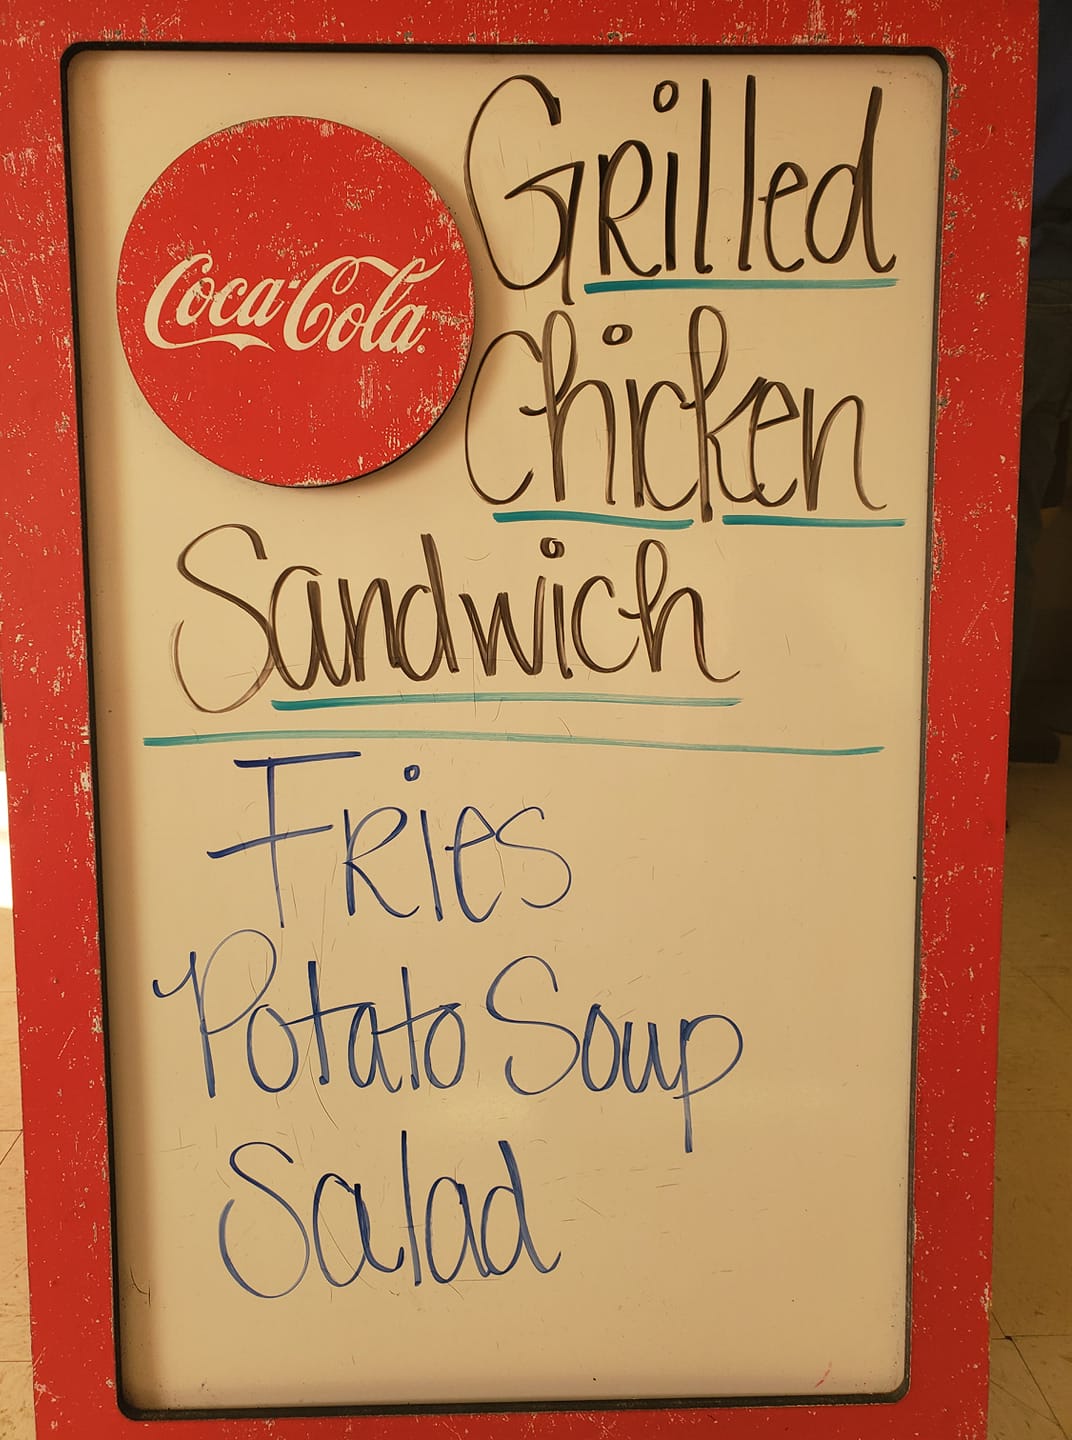 Coca-Cola
Grilled
Chicken
Sandwich
Fries
Potato Soup
Salad